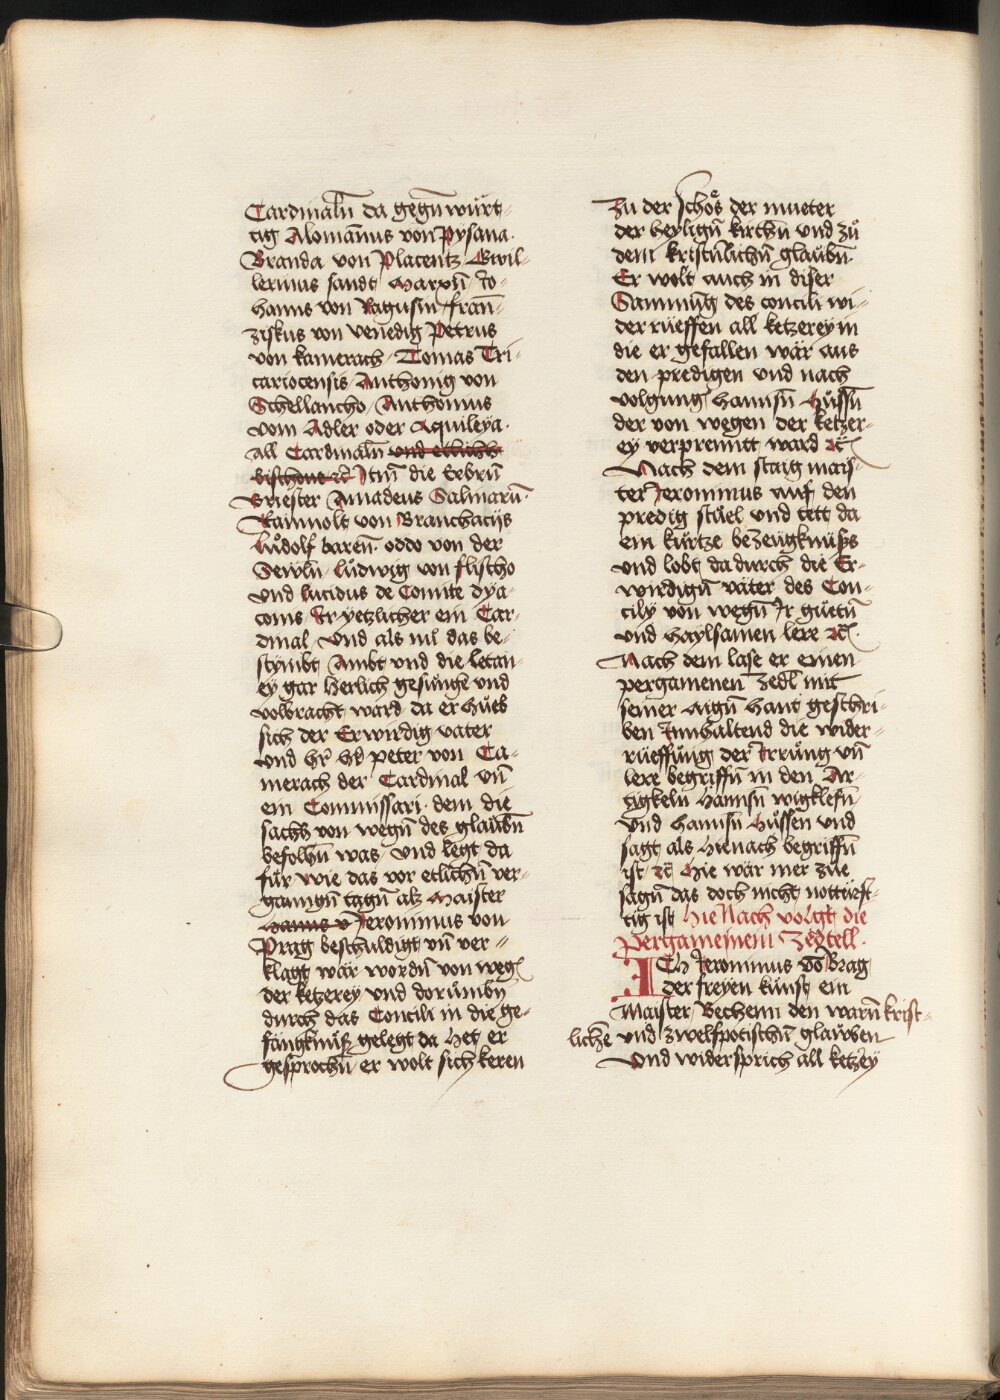 Cardinaln̄ da gegn̄würt-
tig Alomañus von Pysana.
Branda von Placentz Gwil-
lermus sandt Marxn̄ Jo-
hanns von Ragusin frañ-
ziskus von venedig Petrus
von kamerach Tomas Tri-
cariocensis Anthonig von
Schellancho Anthonius
vom Adler oder Acquileya.
All Cardinaln̄ und ettlichh
bischoue ꝛc̄ Itm̄ die Erbrn̄
Briester Amadeus Salinarū.
Rainnolt von Branchacijs
lůdolf baren̄. oddo von der
Sewln̄ lůdwig von flischo
vnd lucidus de Comite dya-
cons Ir yetzlicher ein Car-
dinal Vnd als nů das be-
stymbt Ambt und die letan-
ey gar herlich gesunge vnd
volbracht ward da er hůeb
sich der Erwirdig vater
vnd hr̄ hr̄ peter von Ca-
merach der Cardinal vn̄
ein Commissari. dem die
sachh von wegn̄ des glaubn̄
befolhn̄ was. vnd legt da
für wie das vor etlichn̄ ver-
gangn̄ tagn̄ als Maister
Hanns v̄ Jeronimus von
Prag beschuldigt vn̄ ver-
klagt wär wordn̄ von weḡ
der ketzerey vnd dorůmbn̄
durch das Concili in die ge-
fängknůß gelegt da het er
gesprochn̄ er wolt sich keren
Zu der schos der mueter
der heylign̄ kirchn̄ vnd zů
dem kristn̄lichn̄ glaubn̄.
Er wolt auch in diser
Samnūg des concili wi-
der rüeffen all ketzerey in
die er gefallen wär aus
den predigen vnd nach
volgung hannsn̄ Hůssn̄
der von wegen der ketzer-
ey verprennt ward ꝛc̄
Nach dem staig mais-
ter Jeronimus auf den
predig stůel vnd tett da
ein kürtze bezeugknüss
vnd lobt da durch die Er-
wirdign̄ väter des Con-
cily von wegn̄ Ir güetn̄
vnd haylsamen lere ꝛc̄.
Nach dem lase er einen
pergamenen zedl mit
seiner aign̄ hant geschri-
ben Innhaltend die wider-
rüeffung der Irrung vn̄
lere begriffn̄ in den Ar-
tigkeln hannsn̄ wigklefn̄
vnd hannsn̄ Hůssen vnd
sagt als hienach begriffn̄
ist ꝛc̄ Hie wär mer zue
sagn̄ das doch nicht nottürf-
tig ist Hie Nach volgt die
Pergameineni Zedtell.
ICh Jeronimus vō Brag
der freyen künst ein
Maister Bechenn den warn̄ krist-
lichē vnd zwelfpotischn̄ glawben
Vnd widersprich all ketzey